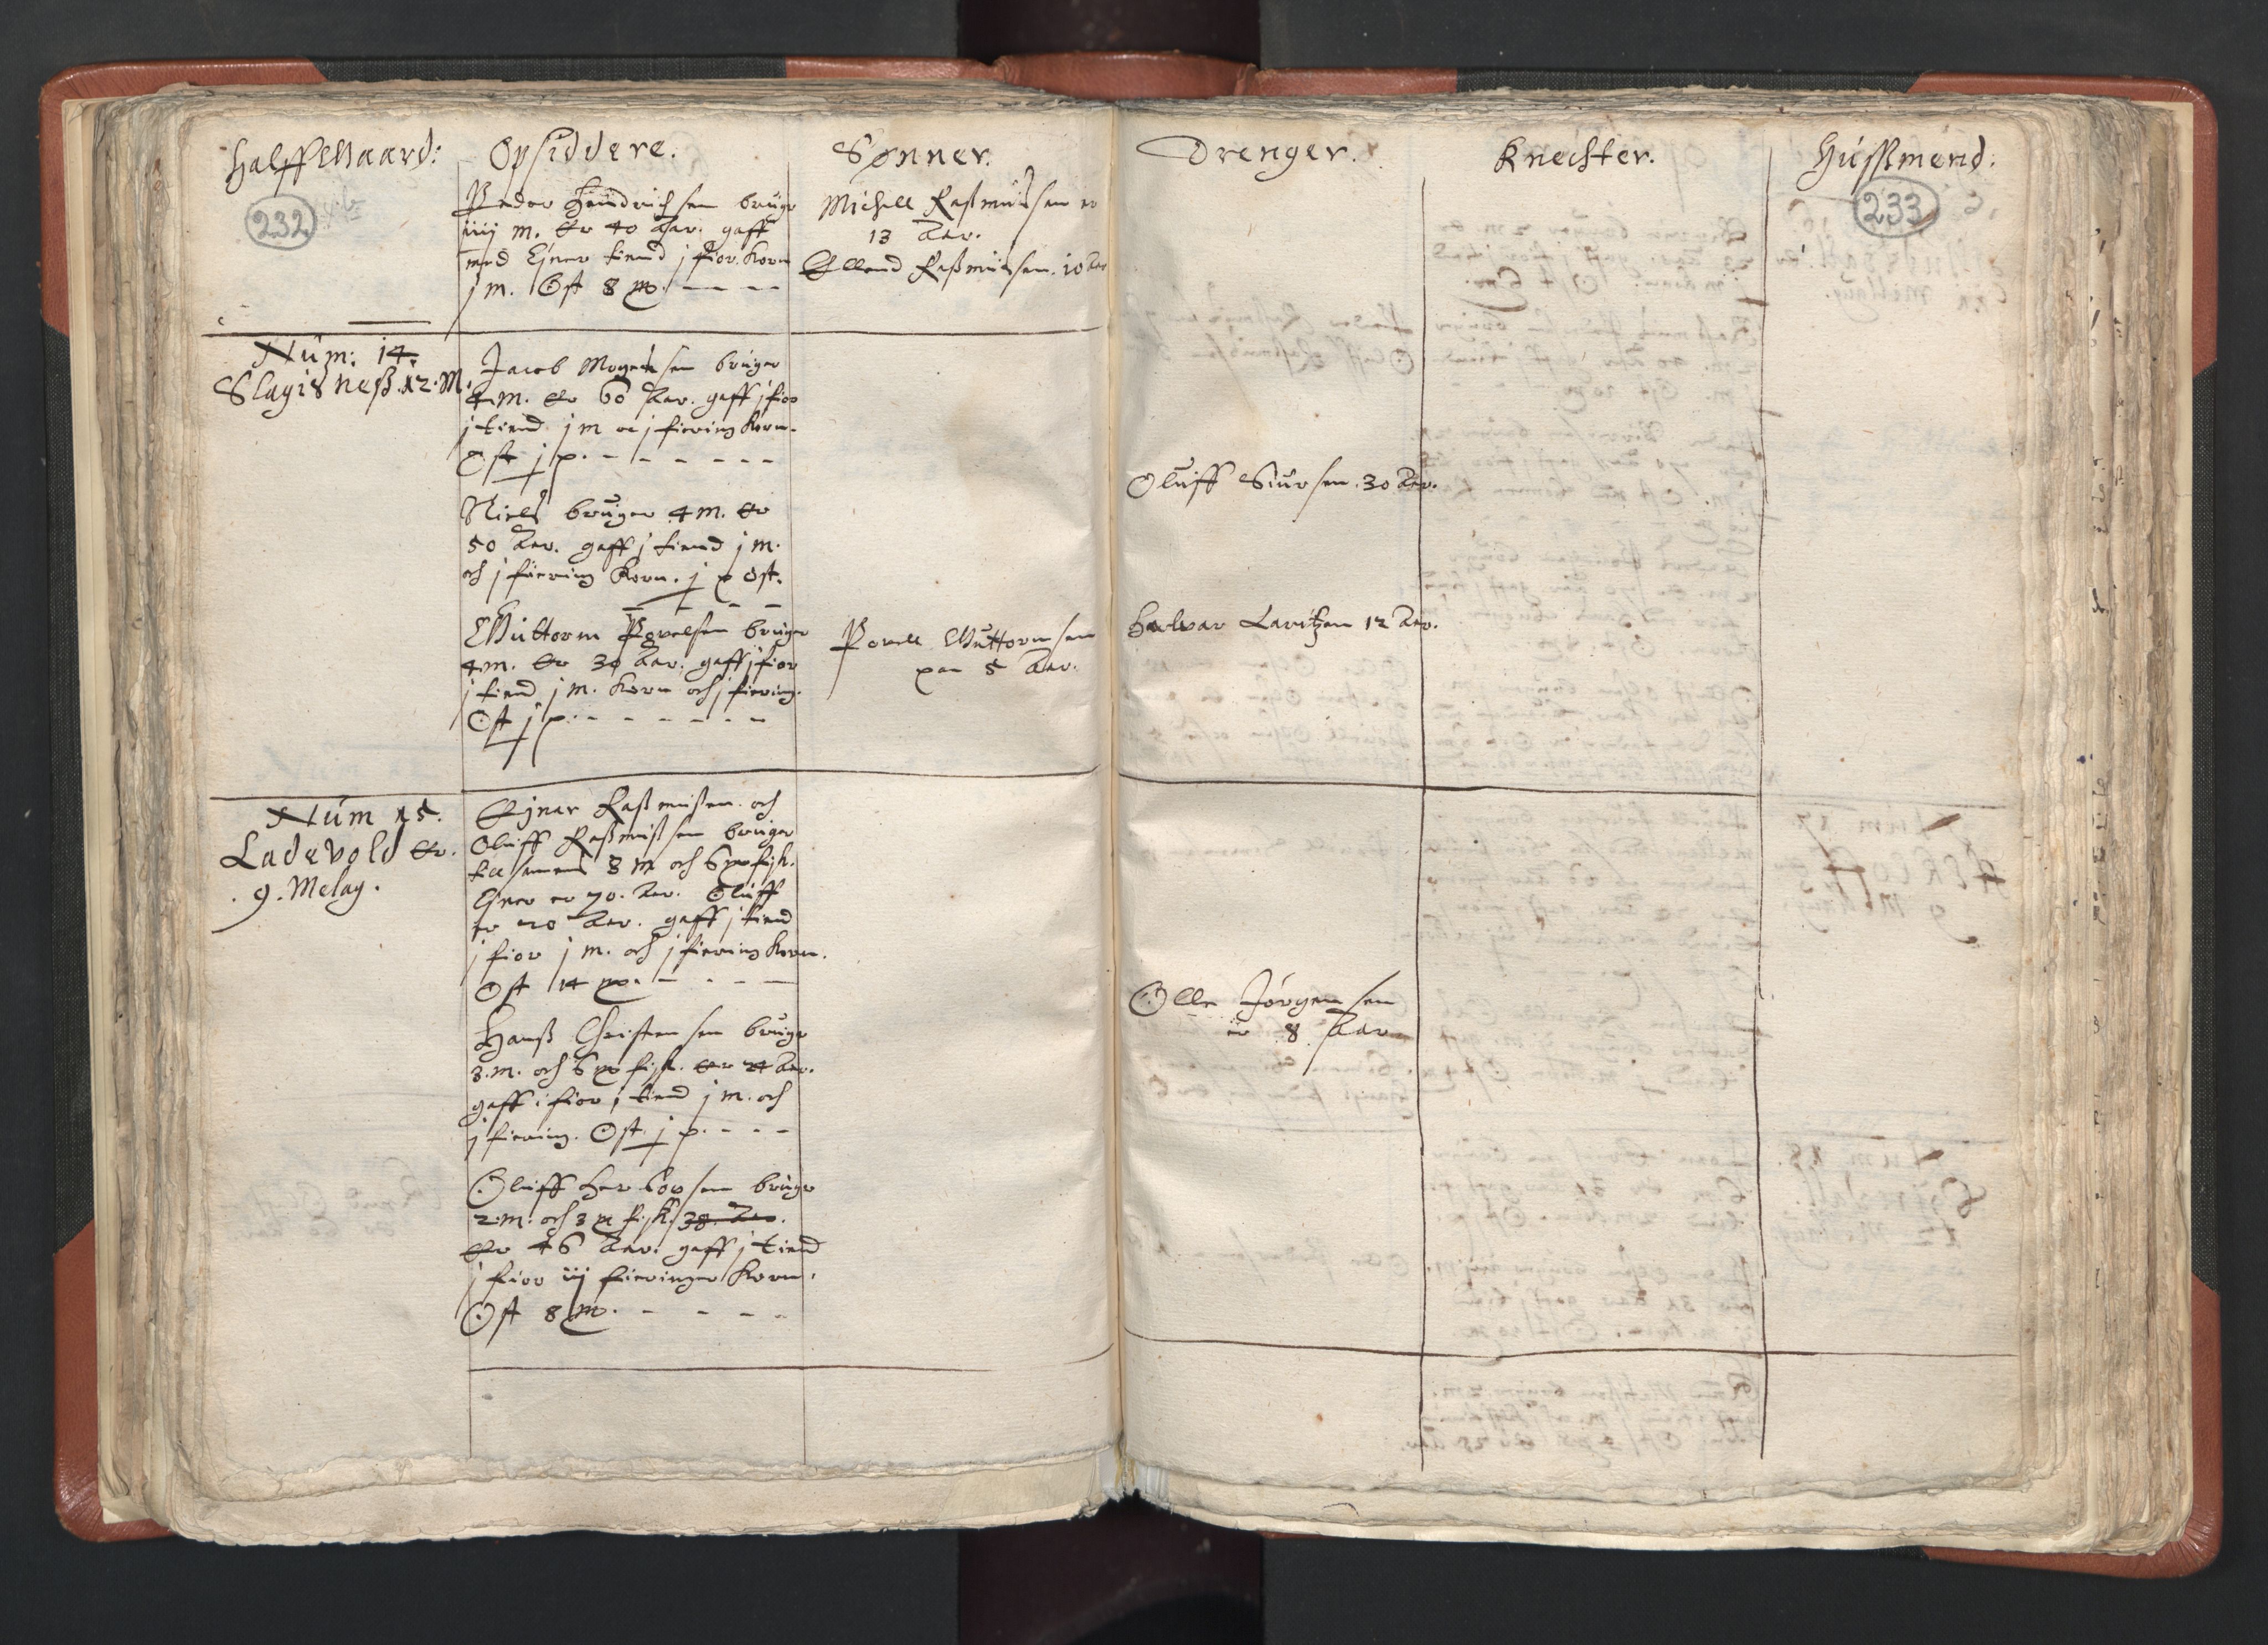 Halff Gaard: Opsiddere. Sønner. Drenger. Knechter. Hussmend:
232
233
Peder Hendrichsen bruger
iiij m. Er 40 Aar. gaff
med Ejner tiend j fior. Korn
j m. Ost 8 m. - - -
Michell Rasmussen er
13 Aar.
Ellend Rasmussen. 10 Aar
Num: 14.
Slagisness. 12. M.
Jacob Mogensen bruger
4 m. Er 60 Aar. gaff j fior
j tiend j m oc j fiering Korn.
Ost j p. - - - - - -
Niels bruger 4 m. Er
50 Aar. gaff j tiend j m.
och j fiering Korn. j p Ost.
Oluff Siursen. 30 Aar.
Guttorm Povelsen bruger
4 m. Er 30 Aar. gaff j fior
j tiend j m. Korn och j fiering.
Ost j p. - - - - - -
Povell Guttormsen
paa 5 Aar.
Halvar Lauritzen 12 Aar.
Num 15.
Ladevold Er.
9. Melag.
Ejner Rasmussen och
Oluff Rasmussen bruger
tilsamens 3 m och 6 fisk.
Ejner er 70. Aar. Oluff
er 20 Aar. gaff j tiend
j fior j m. och j fiering Korn.
Ost 14 m. - - - -
Hanss Christensen bruger
3. m. och 6 fisk. Er 24 Aar.
gaff i fior j tiend j m. och
j fiering. Ost j p. - - -
Olle Jørgensen
er 8 Aar
Oluff bruger
2 m: och 3 fisk. 38 Aar.
Er 46 Aar: gaff j tiend
j fior iij fieringer Korn.
Ost 8 m. - - - -